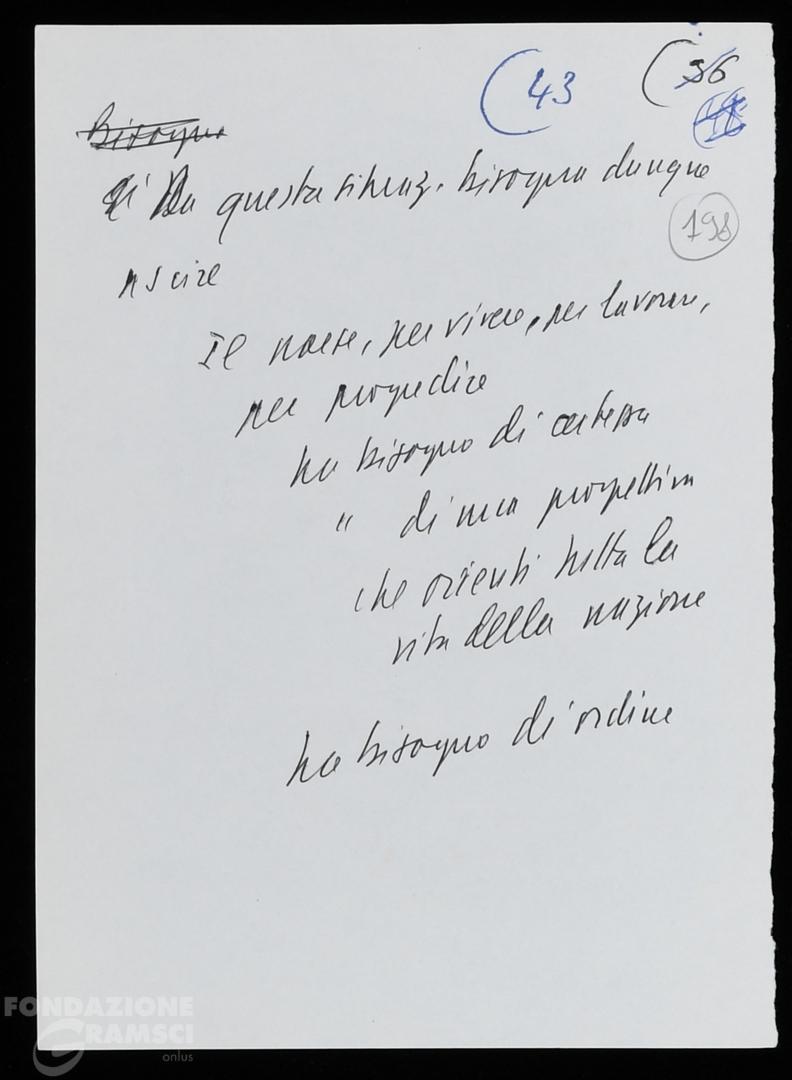 (43
(36
18
Bisogna
Da questa situaz. bisogna dunque
198
uscire
Il paese, per vivere, per lavorare,
per progredire
ha bisogno di certezza
" di una prospettiva
che orienti tutta la
vita della nazione
ha bisogno di ordine
FONDAZIONE
GRAMSCI
onlus